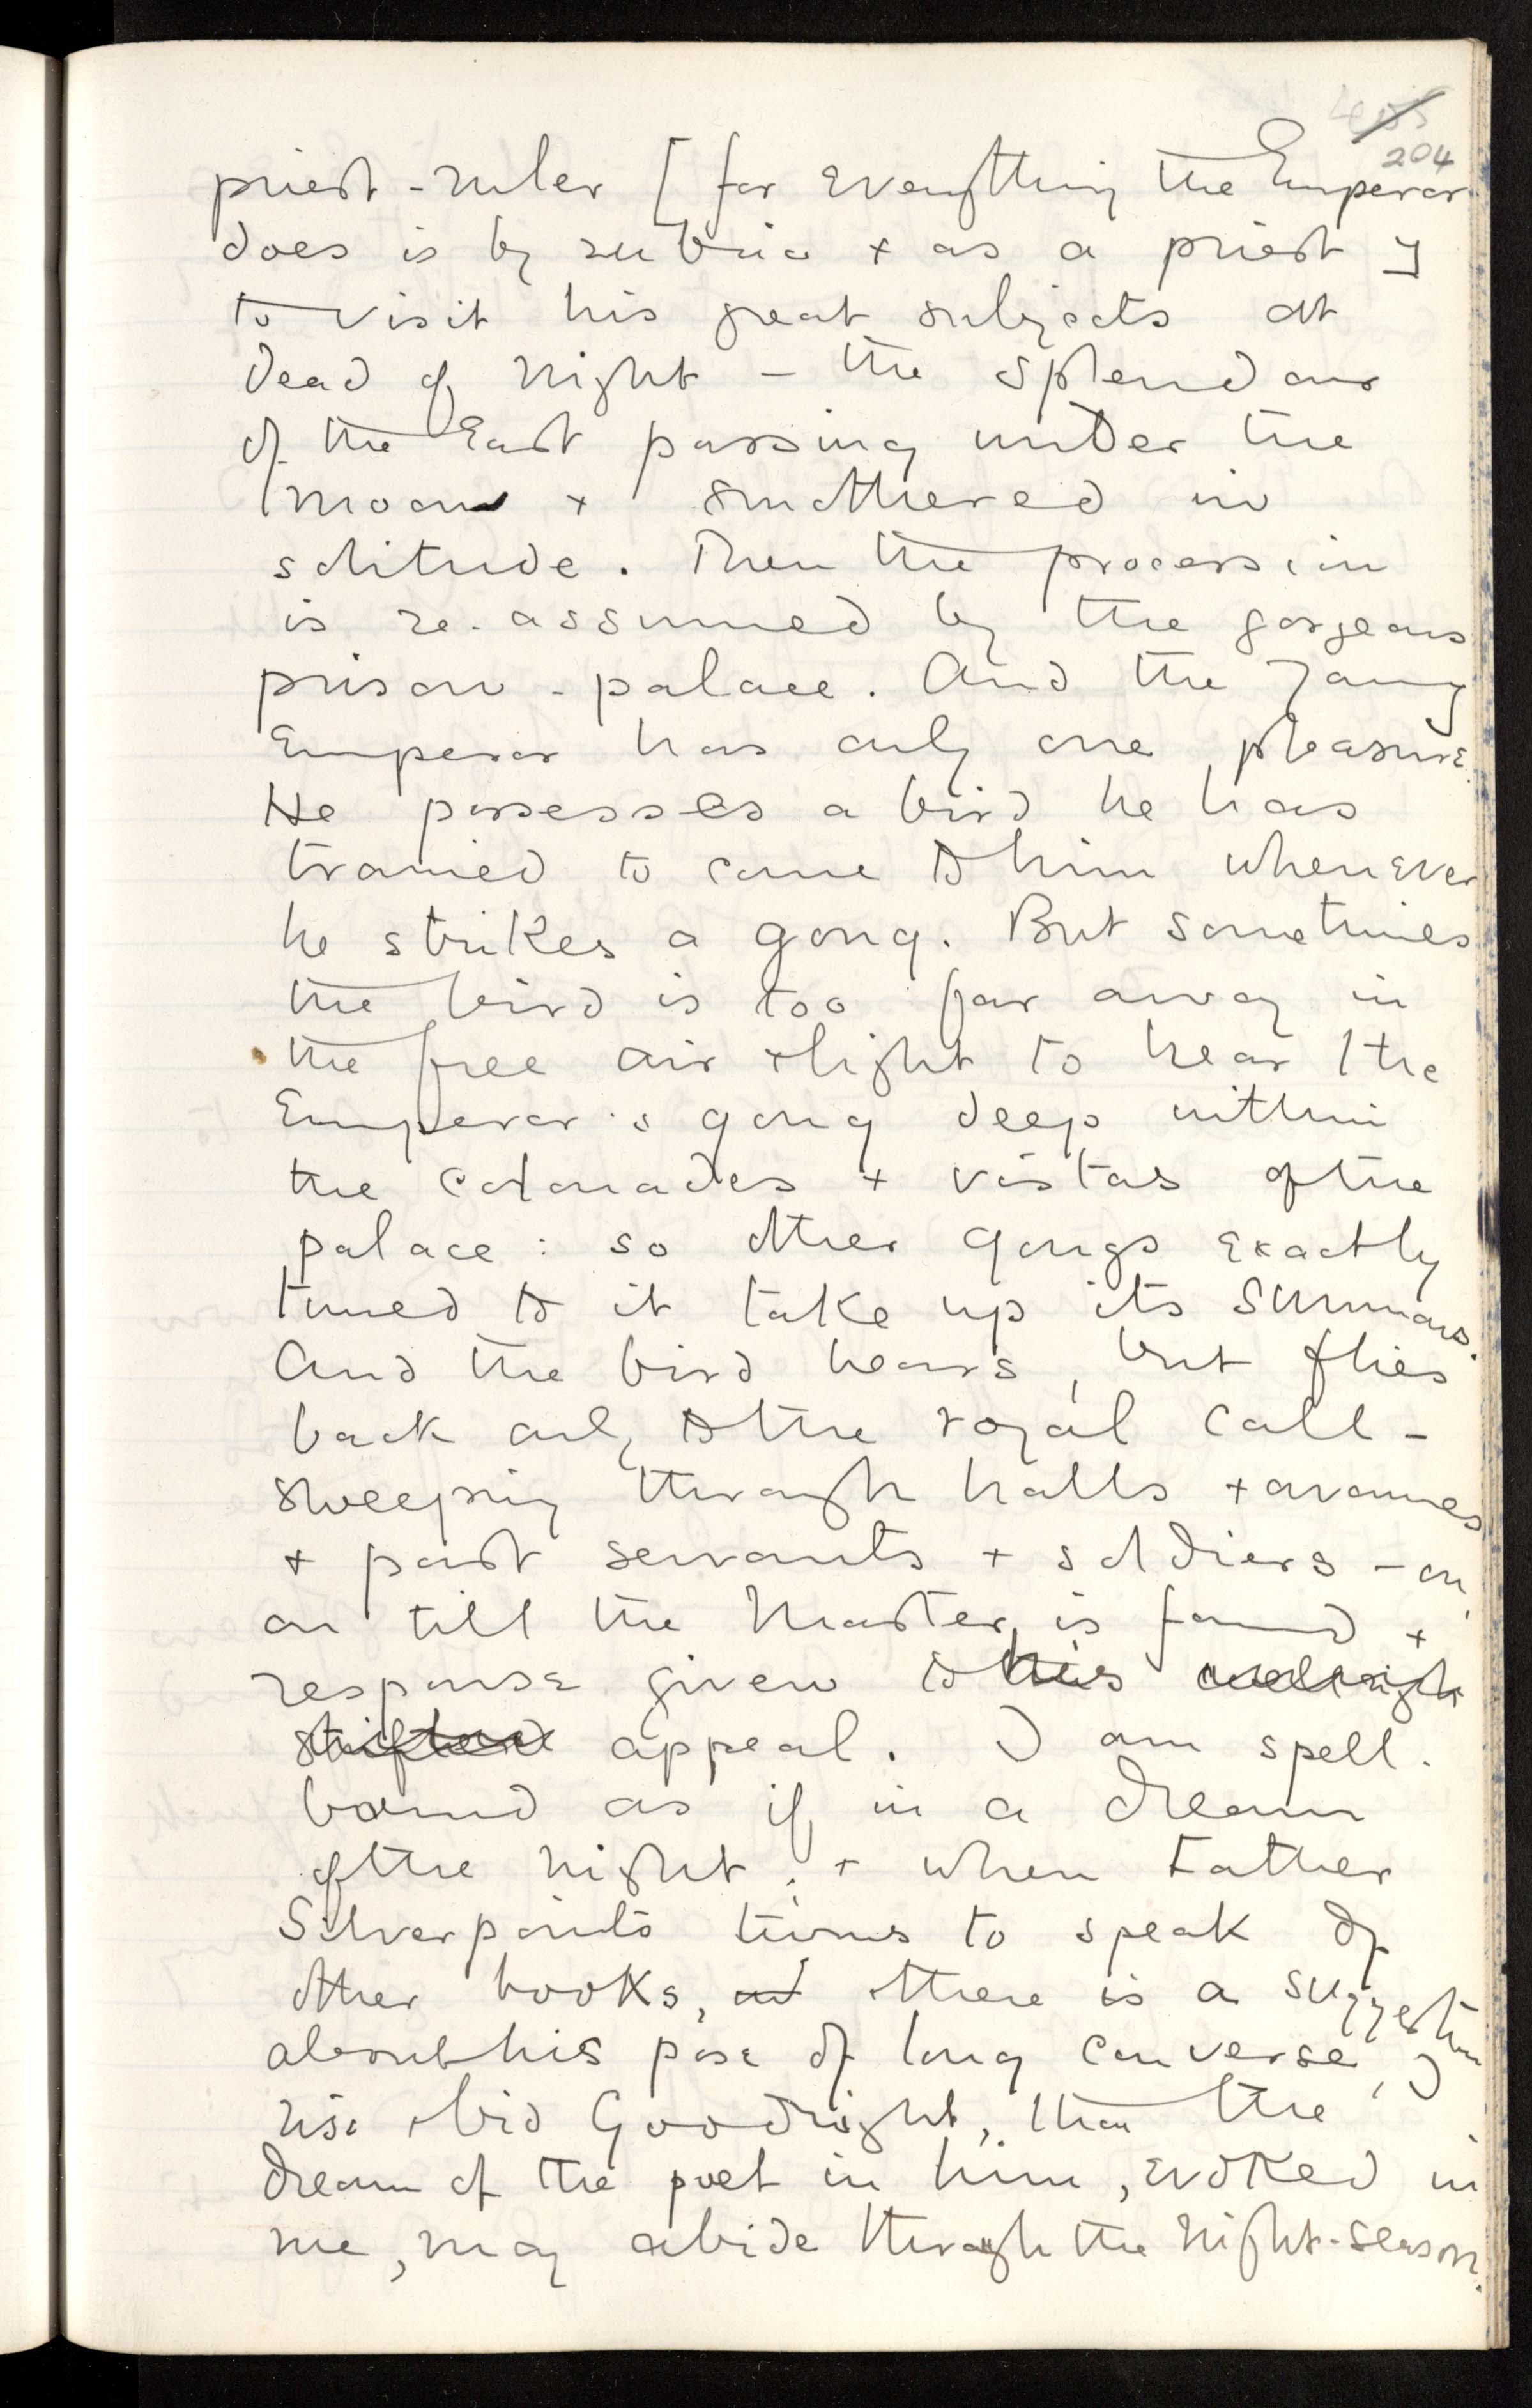 204
priest-ruler [for everything the Emperor
does is by rubric + as a priest]
to visit his great subjects at
dead of night - the splendour
of the East passing under the
moon + smothered in
solitude. Then the procession
is re-assumed by the gorgeous
prison-palace. And the young
Emperor has only one pleasure.
He possesses a bird he has
trained to come to him whenever
he strikes a gong. But sometimes
the bird is too far away in
the free air + light to hear the
Emperor's gong deep within
the colonades + vistas of the
palace: so other gongs exactly
tuned to it take up its summons.
And the bird hears, but flies
back only to the royal call -
sweeping through halls + avenues
+ past servants + soldiers - on,
on till the Master is found +
response given to his
appeal. I am spell-
bound as if in a dream
of the night; + when Father
Silverpoints turns to speak of
other books, and there is a suggestion
about his pose of long converse, I
rise + bid Goodnight, that the
dream of the poet in him, evoked in
me, may abide through the night-season.